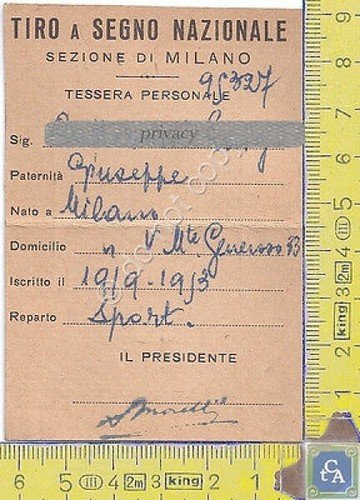 TIRO A SEGNO NAZIONALE
SEZIONE DI MILANO
95327
TESSERA PERSONALE
Sig. privacy
Paternità Giuseppe
Nato a Milano
Domicilio " V. Mte Generoso
Iscritto il 19/9-1913
Reparto Sport.
IL PRESIDENTE
9
8
7
6
5
4
3
king
2m
III
2
1
6 5 III 4 2m 3 king 2 1
CtA